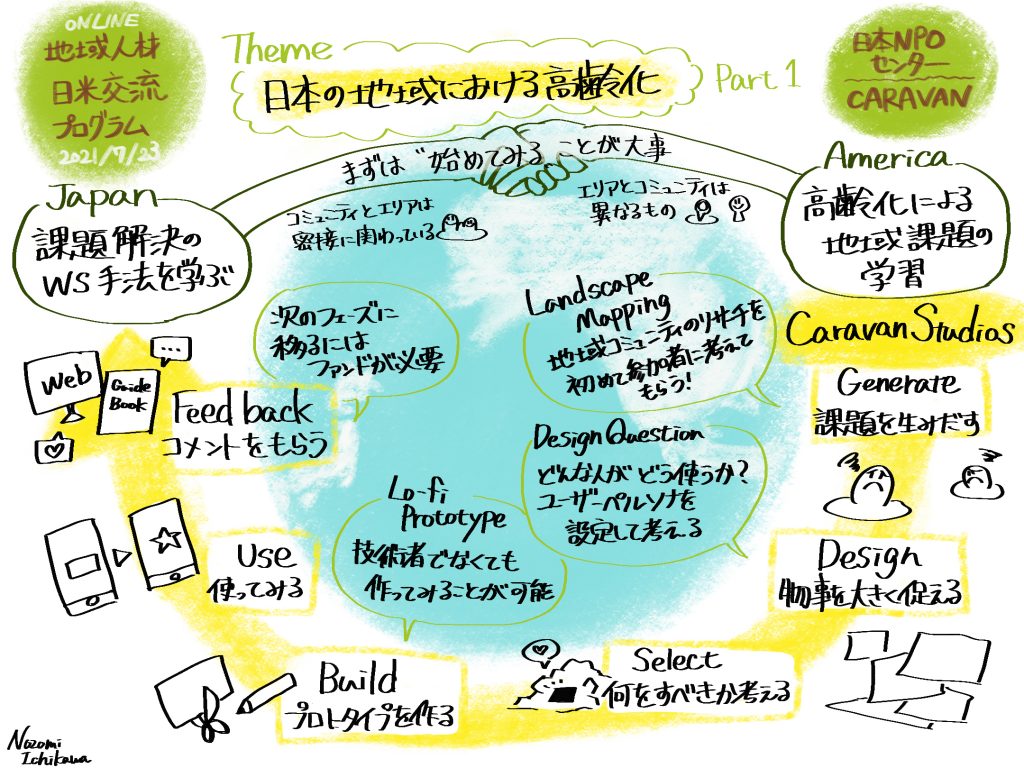 ONLINE
地域人材
日米交流
プログラム
2021/7/23
Theme
日本の地域における高齢化
Part 1
日本NPO
センター
CARAVAN
まずは"始めてみる"ことが大事
Japan
課題解決の
WS手法を学ぶ
コミュニティとエリアは
密接に関わっている
エリアとコミュニティは
異なるもの
America
高齢化による
地域課題の
学習
Caravan Studios
Generate
課題を生みだす
Landscape
Mapping
地域コミュニティのリサーチを
初めて参加者に考えて
もらう!
Design
物事を大きく捉える
Design Question
どんな人がどう使うか?
ユーザーペルソナを
設定して考える
Select
何をすべきか考える
Build
プロトタイプを作る
Lo-fi
Prototype
技術者でなくても
作ってみることが可能
Use
使ってみる
Feed back
コメントをもらう
Web
Guide
Book
...
次のフェーズに
移るには
ファンドが必要
Nozomi
Ichikawa